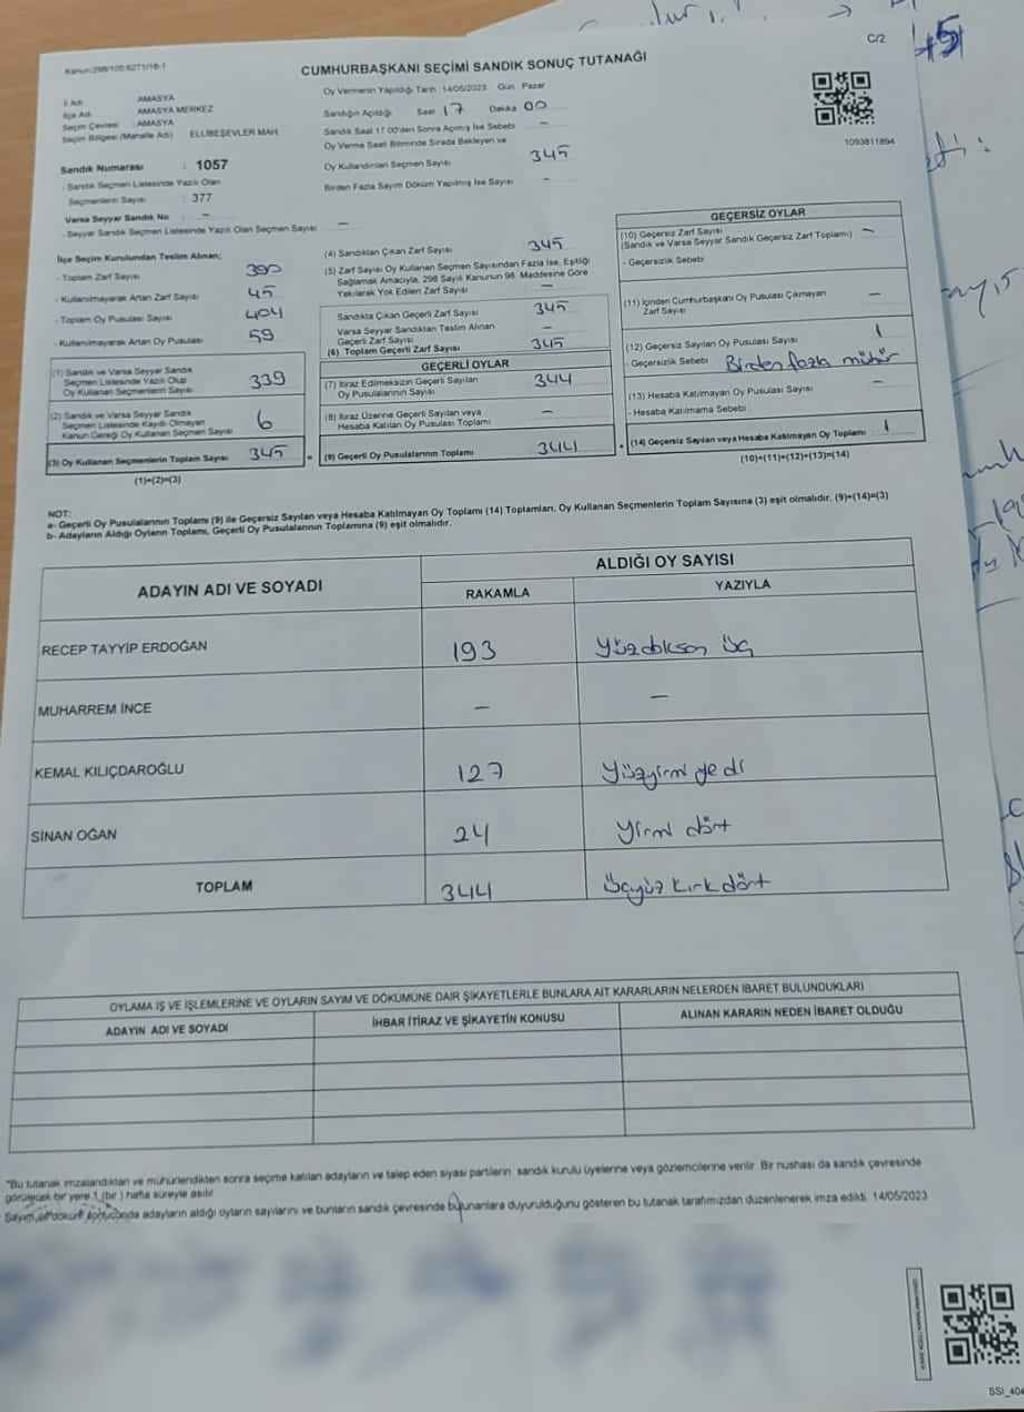 C/2
45
Kanun:298/100;6271/18-1
CUMHURBAŞKANI SEÇİMİ SANDIK SONUÇ TUTANAĞI
İl Adı : AMASYA
İlçe Adı : AMASYA MERKEZ
Seçim Çevresi : AMASYA
Seçim Bölgesi (Mahalle Adı) : ELLİBEŞEVLER MAH.
Sandık Numarası : 1057
- Sandık Seçmen Listesinde Yazılı Olan
Seçmenlerin Sayısı : 377
Varsa Seyyar Sandık No : -
- Seyyar Sandık Seçmen Listesinde Yazılı Olan Seçmen Sayısı : -
Oy Vermenin Yapıldığı Tarih 14/05/2023 Gün Pazar
Sandığın Açıldığı Saat 17 Dakika 00
Sandık Saat 17:00'den Sonra Açılmış İse Sebebi -
Oy Verme Saati Bitiminde Sırada Bekleyen ve
Oy Kullandırılan Seçmen Sayısı 345
Birden Fazla Sayım Döküm Yapılmış İse Sayısı -
1093811894
İlçe Seçim Kurulundan Teslim Alınan;
- Toplam Zarf Sayısı 390
- Kullanılmayarak Artan Zarf Sayısı 45
- Toplam Oy Pusulası Sayısı 404
- Kullanılmayarak Artan Oy Pusulası 59
(1) Sandık ve Varsa Seyyar Sandık
Seçmen Listesinde Yazılı Olup
Oy Kullanan Seçmenlerin Sayısı 339
(2) Sandık ve Varsa Seyyar Sandık
Seçmen Listesinde Kayıtlı Olmayan
Kanun Gereği Oy Kullanan Seçmen Sayısı 6
(3) Oy Kullanan Seçmenlerin Toplam Sayısı 345
(1)+(2)=(3)
(4) Sandıktan Çıkan Zarf Sayısı 345
(5) Zarf Sayısı Oy Kullanan Seçmen Sayısından Fazla İse, Eşitliği
Sağlamak Amacıyla, 298 Sayılı Kanunun 98. Maddesine Göre
Yakılarak Yok Edilen Zarf Sayısı -
Sandıkta Çıkan Geçerli Zarf Sayısı 345
Varsa Seyyar Sandıktan Teslim Alınan
Geçerli Zarf Sayısı -
(6) Toplam Geçerli Zarf Sayısı 345
GEÇERLİ OYLAR
(7) İtiraz Edilmeksizin Geçerli Sayılan
Oy Pusulalarının Sayısı 344
(8) İtiraz Üzerine Geçerli Sayılan veya
Hesaba Katılan Oy Pusulası Toplamı -
= (9) Geçerli Oy Pusulalarının Toplamı 344
GEÇERSİZ OYLAR
(10) Geçersiz Zarf Sayısı -
(Sandık ve Varsa Seyyar Sandık Geçersiz Zarf Toplamı)
- Geçersizlik Sebebi
(11) İçinden Cumhurbaşkanı Oy Pusulası Çıkmayan
Zarf Sayısı -
(12) Geçersiz Sayılan Oy Pusulası Sayısı 1
- Geçersizlik Sebebi Birden fazla mühür
(13) Hesaba Katılmayan Oy Pusulası Sayısı -
- Hesaba Katılmama Sebebi
+ (14) Geçersiz Sayılan veya Hesaba Katılmayan Oy Toplamı 1
(10)+(11)+(12)+(13)=(14)
NOT:
a- Geçerli Oy Pusulalarının Toplamı (9) ile Geçersiz Sayılan veya Hesaba Katılmayan Oy Toplamı (14) Toplamları, Oy Kullanan Seçmenlerin Toplam Sayısına (3) eşit olmalıdır. (9)+(14)=(3)
b- Adayların Aldığı Oyların Toplamı, Geçerli Oy Pusulalarının Toplamına (9) eşit olmalıdır.
ADAYIN ADI VE SOYADI
ALDIĞI OY SAYISI
RAKAMLA YAZIYLA
RECEP TAYYİP ERDOĞAN 193 Yüzdoksan üç
MUHARREM İNCE - -
KEMAL KILIÇDAROĞLU 127 Yüzyirmi yedi
SİNAN OĞAN 24 Yirmi dört
TOPLAM 344 Üçyüz kırk dört
OYLAMA İŞ VE İŞLEMLERİNE VE OYLARIN SAYIM VE DÖKÜMÜNE DAİR ŞİKAYETLERLE BUNLARA AİT KARARLARIN NELERDEN İBARET BULUNDUKLARI
ADAYIN ADI VE SOYADI İHBAR İTİRAZ VE ŞİKAYETİN KONUSU ALINAN KARARIN NEDEN İBARET OLDUĞU
"Bu tutanak imzalandıktan ve mühürlendikten sonra seçime katılan adayların ve talep eden siyasi partilerin sandık kurulu üyelerine veya gözlemcilerine verilir. Bir nushası da sandık çevresinde
görülecek bir yere 1 (bir) hafta süreyle asılır.
Sayım ve döküm sonucunda adayların aldığı oyların sayılarını ve bunların sandık çevresinde bulunanlara duyurulduğunu gösteren bu tutanak tarafımızdan düzenlenerek imza edildi. 14/05/2023
SSI_404